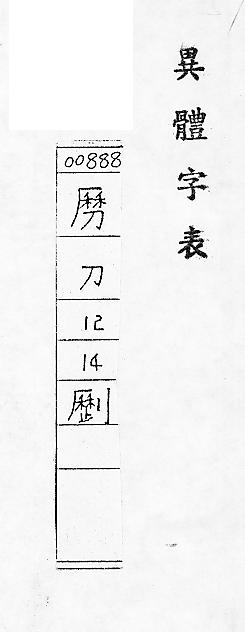 異體字表
00888
刀
12
14